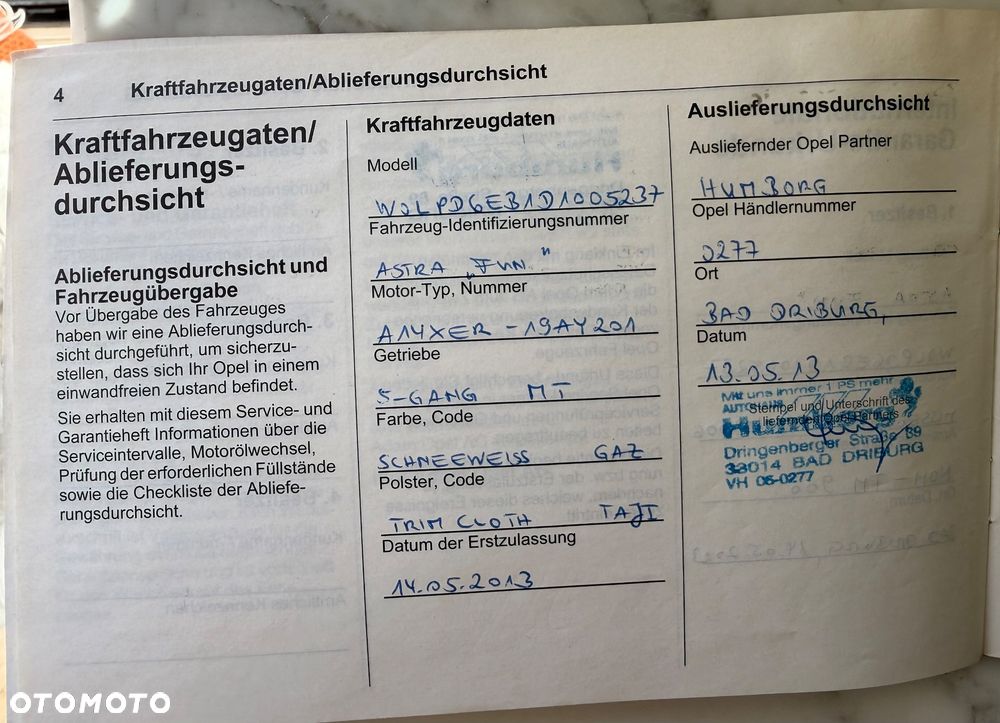 4 Kraftfahrzeugaten/Ablieferungsdurchsicht
Kraftfahrzeugaten/
Ablieferungs-
durchsicht
Ablieferungsdurchsicht und
Fahrzeugübergabe
Vor Übergabe des Fahrzeuges
haben wir eine Ablieferungsdurch-
sicht durchgeführt, um sicherzu-
stellen, dass sich Ihr Opel in einem
einwandfreien Zustand befindet.
Sie erhalten mit diesem Service- und
Garantieheft Informationen über die
Serviceintervalle, Motorölwechsel,
Prüfung der erforderlichen Füllstände
sowie die Checkliste der Abliefe-
rungsdurchsicht.
Kraftfahrzeugdaten
Modell
W0LPD6EB1D1005237
Fahrzeug-Identifizierungsnummer
ASTRA „FUN"
Motor-Typ, Nummer
A14XER - 19AY201
Getriebe
5-GANG MT
Farbe, Code
SCHNEEWEISS GAZ
Polster, Code
TRIM CLOTH TAJI
Datum der Erstzulassung
14.05.2013
Auslieferungsdurchsicht
Ausliefernder Opel Partner
HUMBORG
Opel Händlernummer
0277
Ort
BAD DRIBURG,
Datum
13.05.13
Mit uns immer 1 PS mehr
AUTOHAUS
Stempel und Unterschrift des
liefernden Opel Partners
Dringenberger Straße 89
33014 BAD DRIBURG
VH 06-0277
OTOMOTO